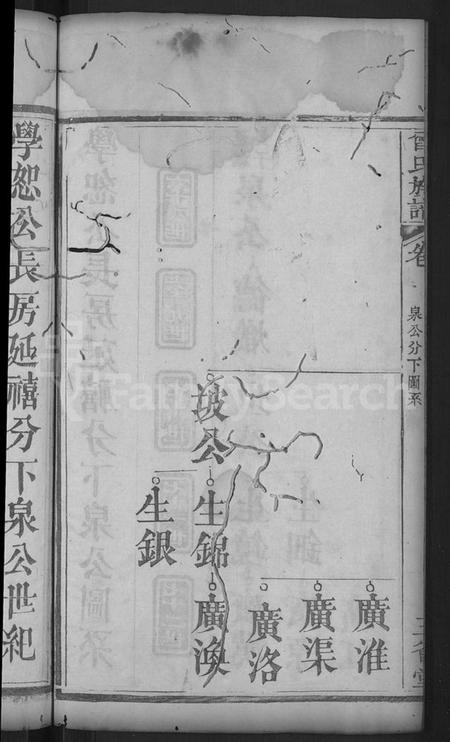 曾氏族譜
卷
泉公分下圖系
三省堂
廣淮
廣渠
廣洛
坡公
生錦
廣渙
生銀
學恕公長房延禧分下泉公世紀
FamilySearch